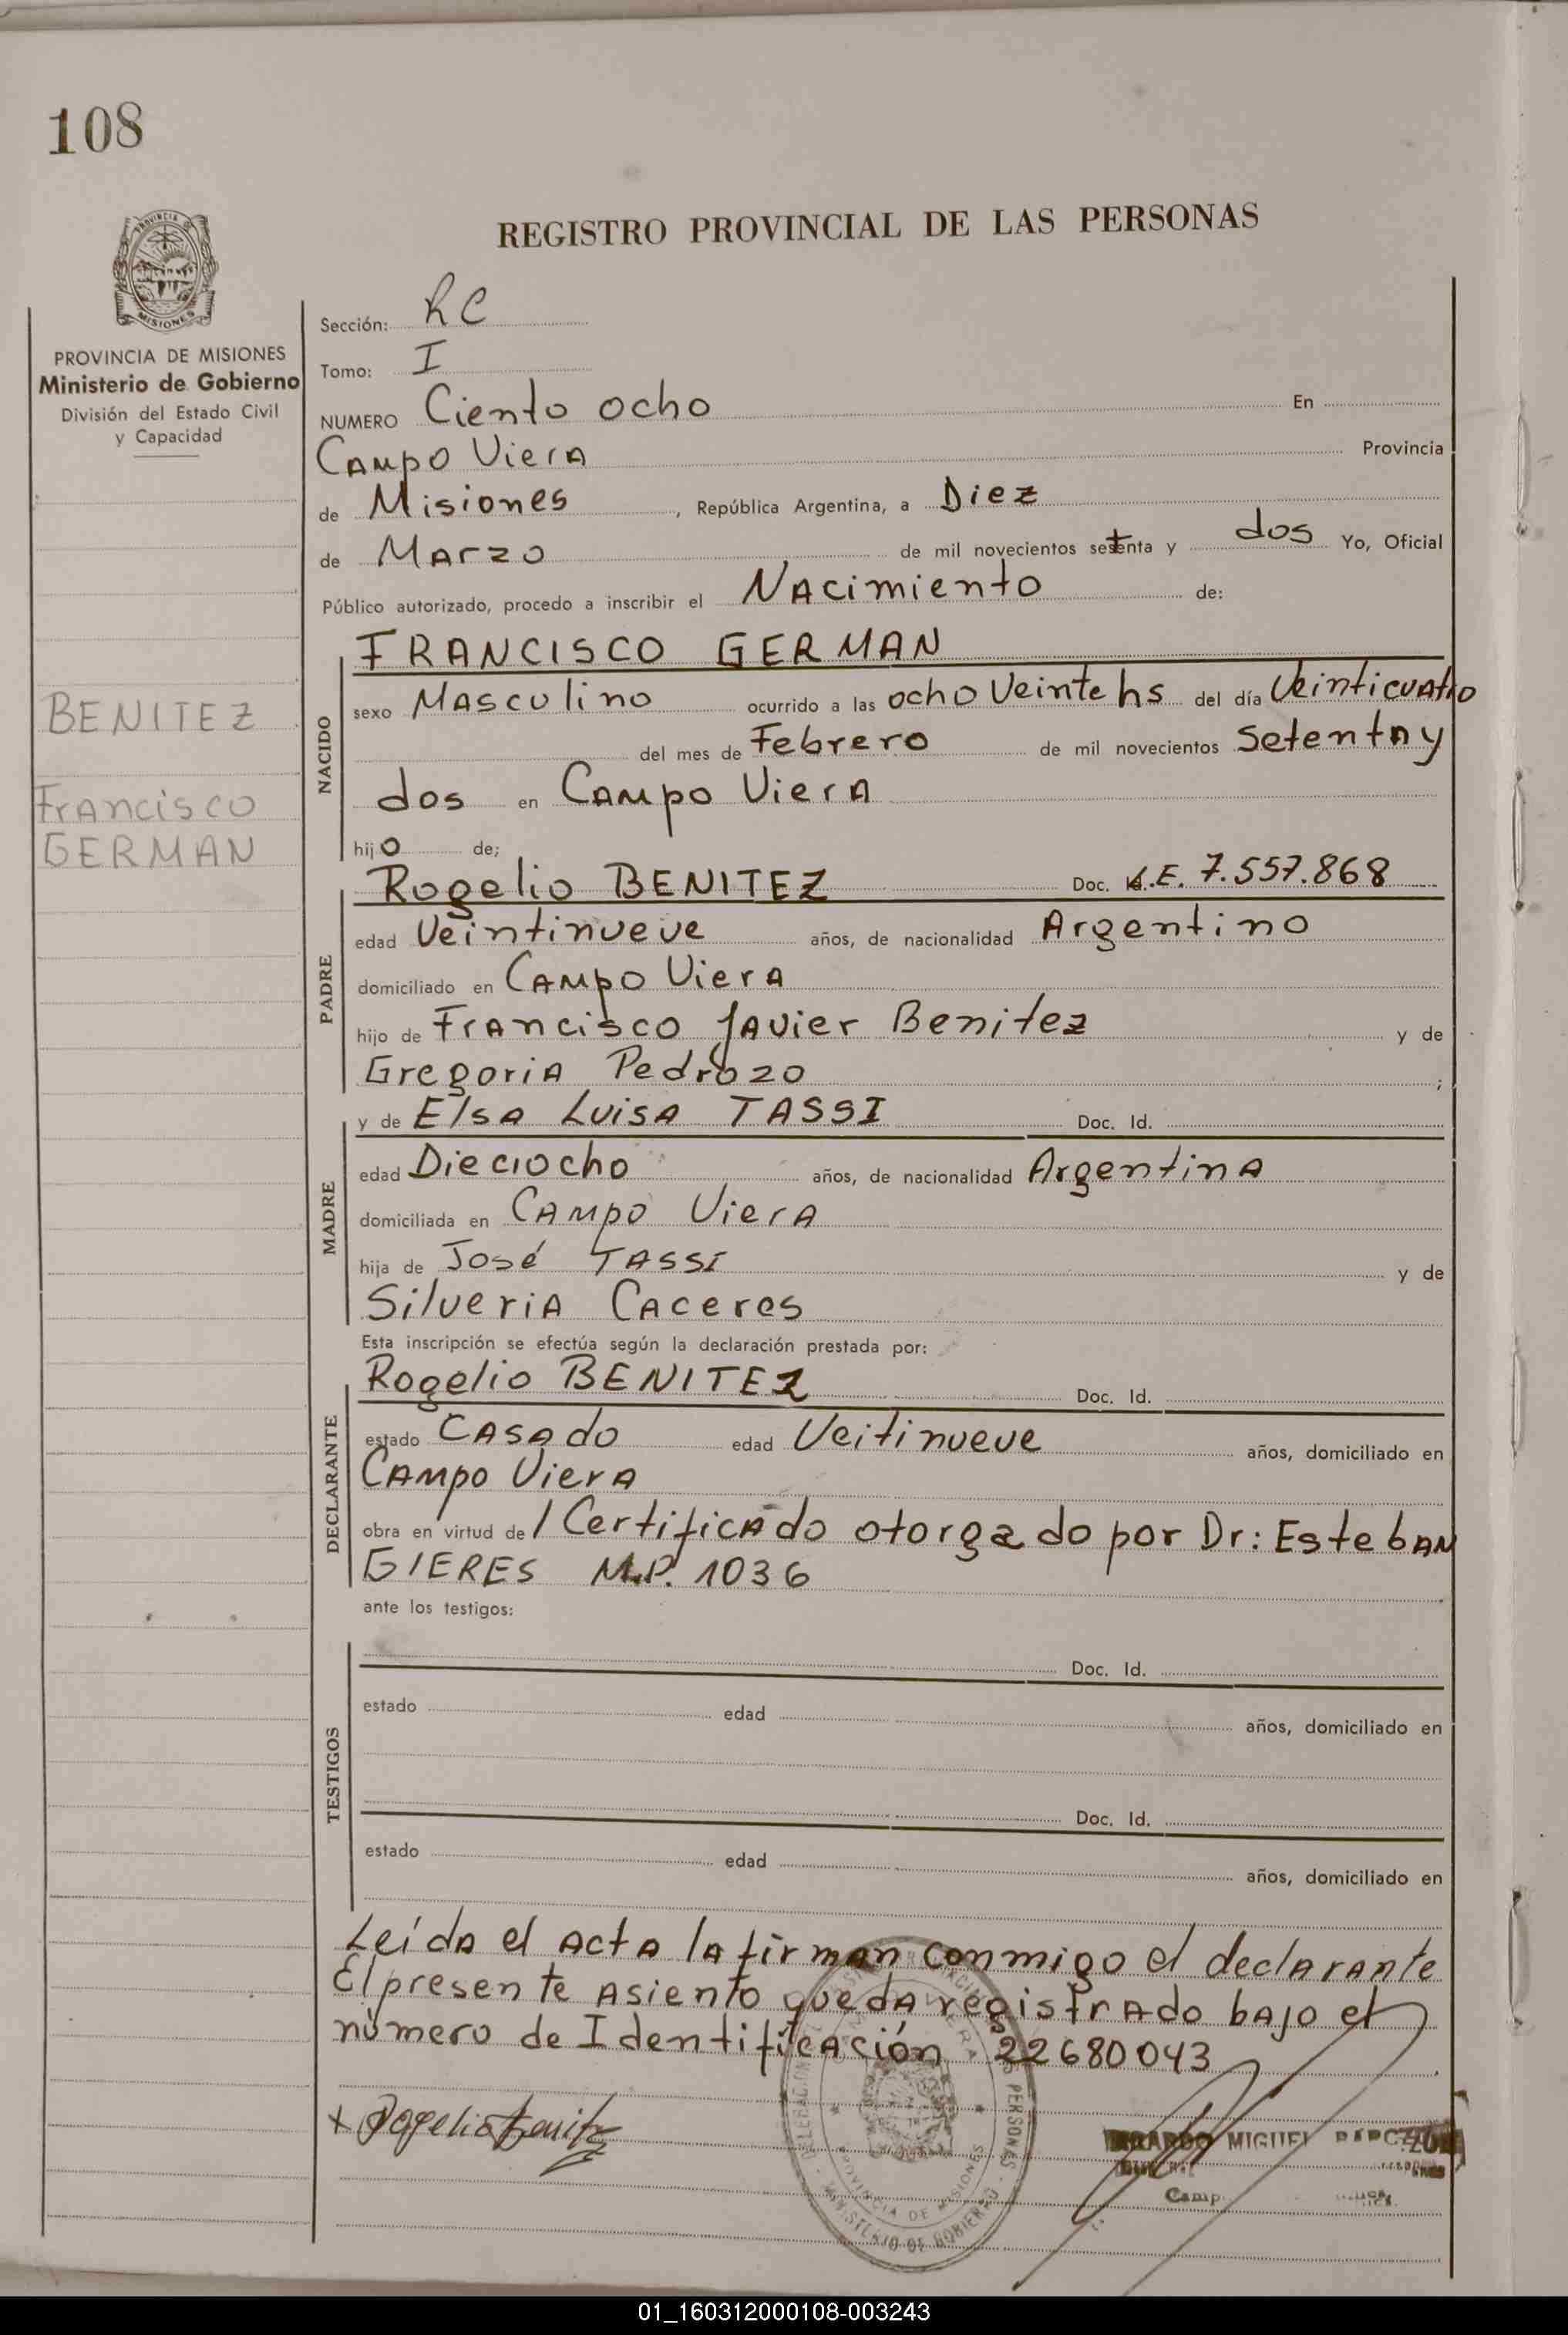 108
REGISTRO PROVINCIAL DE LAS PERSONAS
PROVINCIA
MISIONES
PROVINCIA DE MISIONES
Ministerio de Gobierno
División del Estado Civil
y Capacidad
BENITEZ
Francisco
GERMAN
Sección: RC
Tomo: I
NUMERO Ciento ocho En
Campo Viera Provincia
de Misiones, República Argentina, a Diez
de Marzo de mil novecientos setenta y dos Yo, Oficial
Público autorizado, procedo a inscribir el Nacimiento de:
NACIDO
FRANCISCO GERMAN
sexo Masculino ocurrido a las ocho Veinte hs del día Veinticuatro
del mes de Febrero de mil novecientos setentay
dos en Campo Viera
hijo de;
PADRE
Rogelio BENITEZ Doc. L.E. 7.557.868
edad Veintinueve años, de nacionalidad Argentino
domiciliado en Campo Viera
hijo de Francisco Javier Benitez y de
Gregoria Pedrozo ;
MADRE
y de Elsa Luisa TASSI Doc. Id.
edad Dieciocho años, de nacionalidad Argentina
domiciliada en Campo Viera
hija de José TASSI y de
Silveria Caceres
Esta inscripción se efectúa según la declaración prestada por:
DECLARANTE
Rogelio BENITEZ Doc. Id.
estado Casado edad Veitinueve años, domiciliado en
Campo Viera
obra en virtud de 1 Certificado otorgado por Dr: Esteban
GIERES M.P. 1036
ante los testigos:
TESTIGOS
Doc. Id.
estado edad años, domiciliado en
Doc. Id.
estado edad años, domiciliado en
Leída el acta la firman conmigo el declarante
El presente asiento queda registrado bajo el
número de Identificación 22680043
x Rogelio Benitez
MIGUEL
Camp
PROVINCIA DE MISIONES
MINISTERIO DE GOBIERNO
01_160312000108-003243